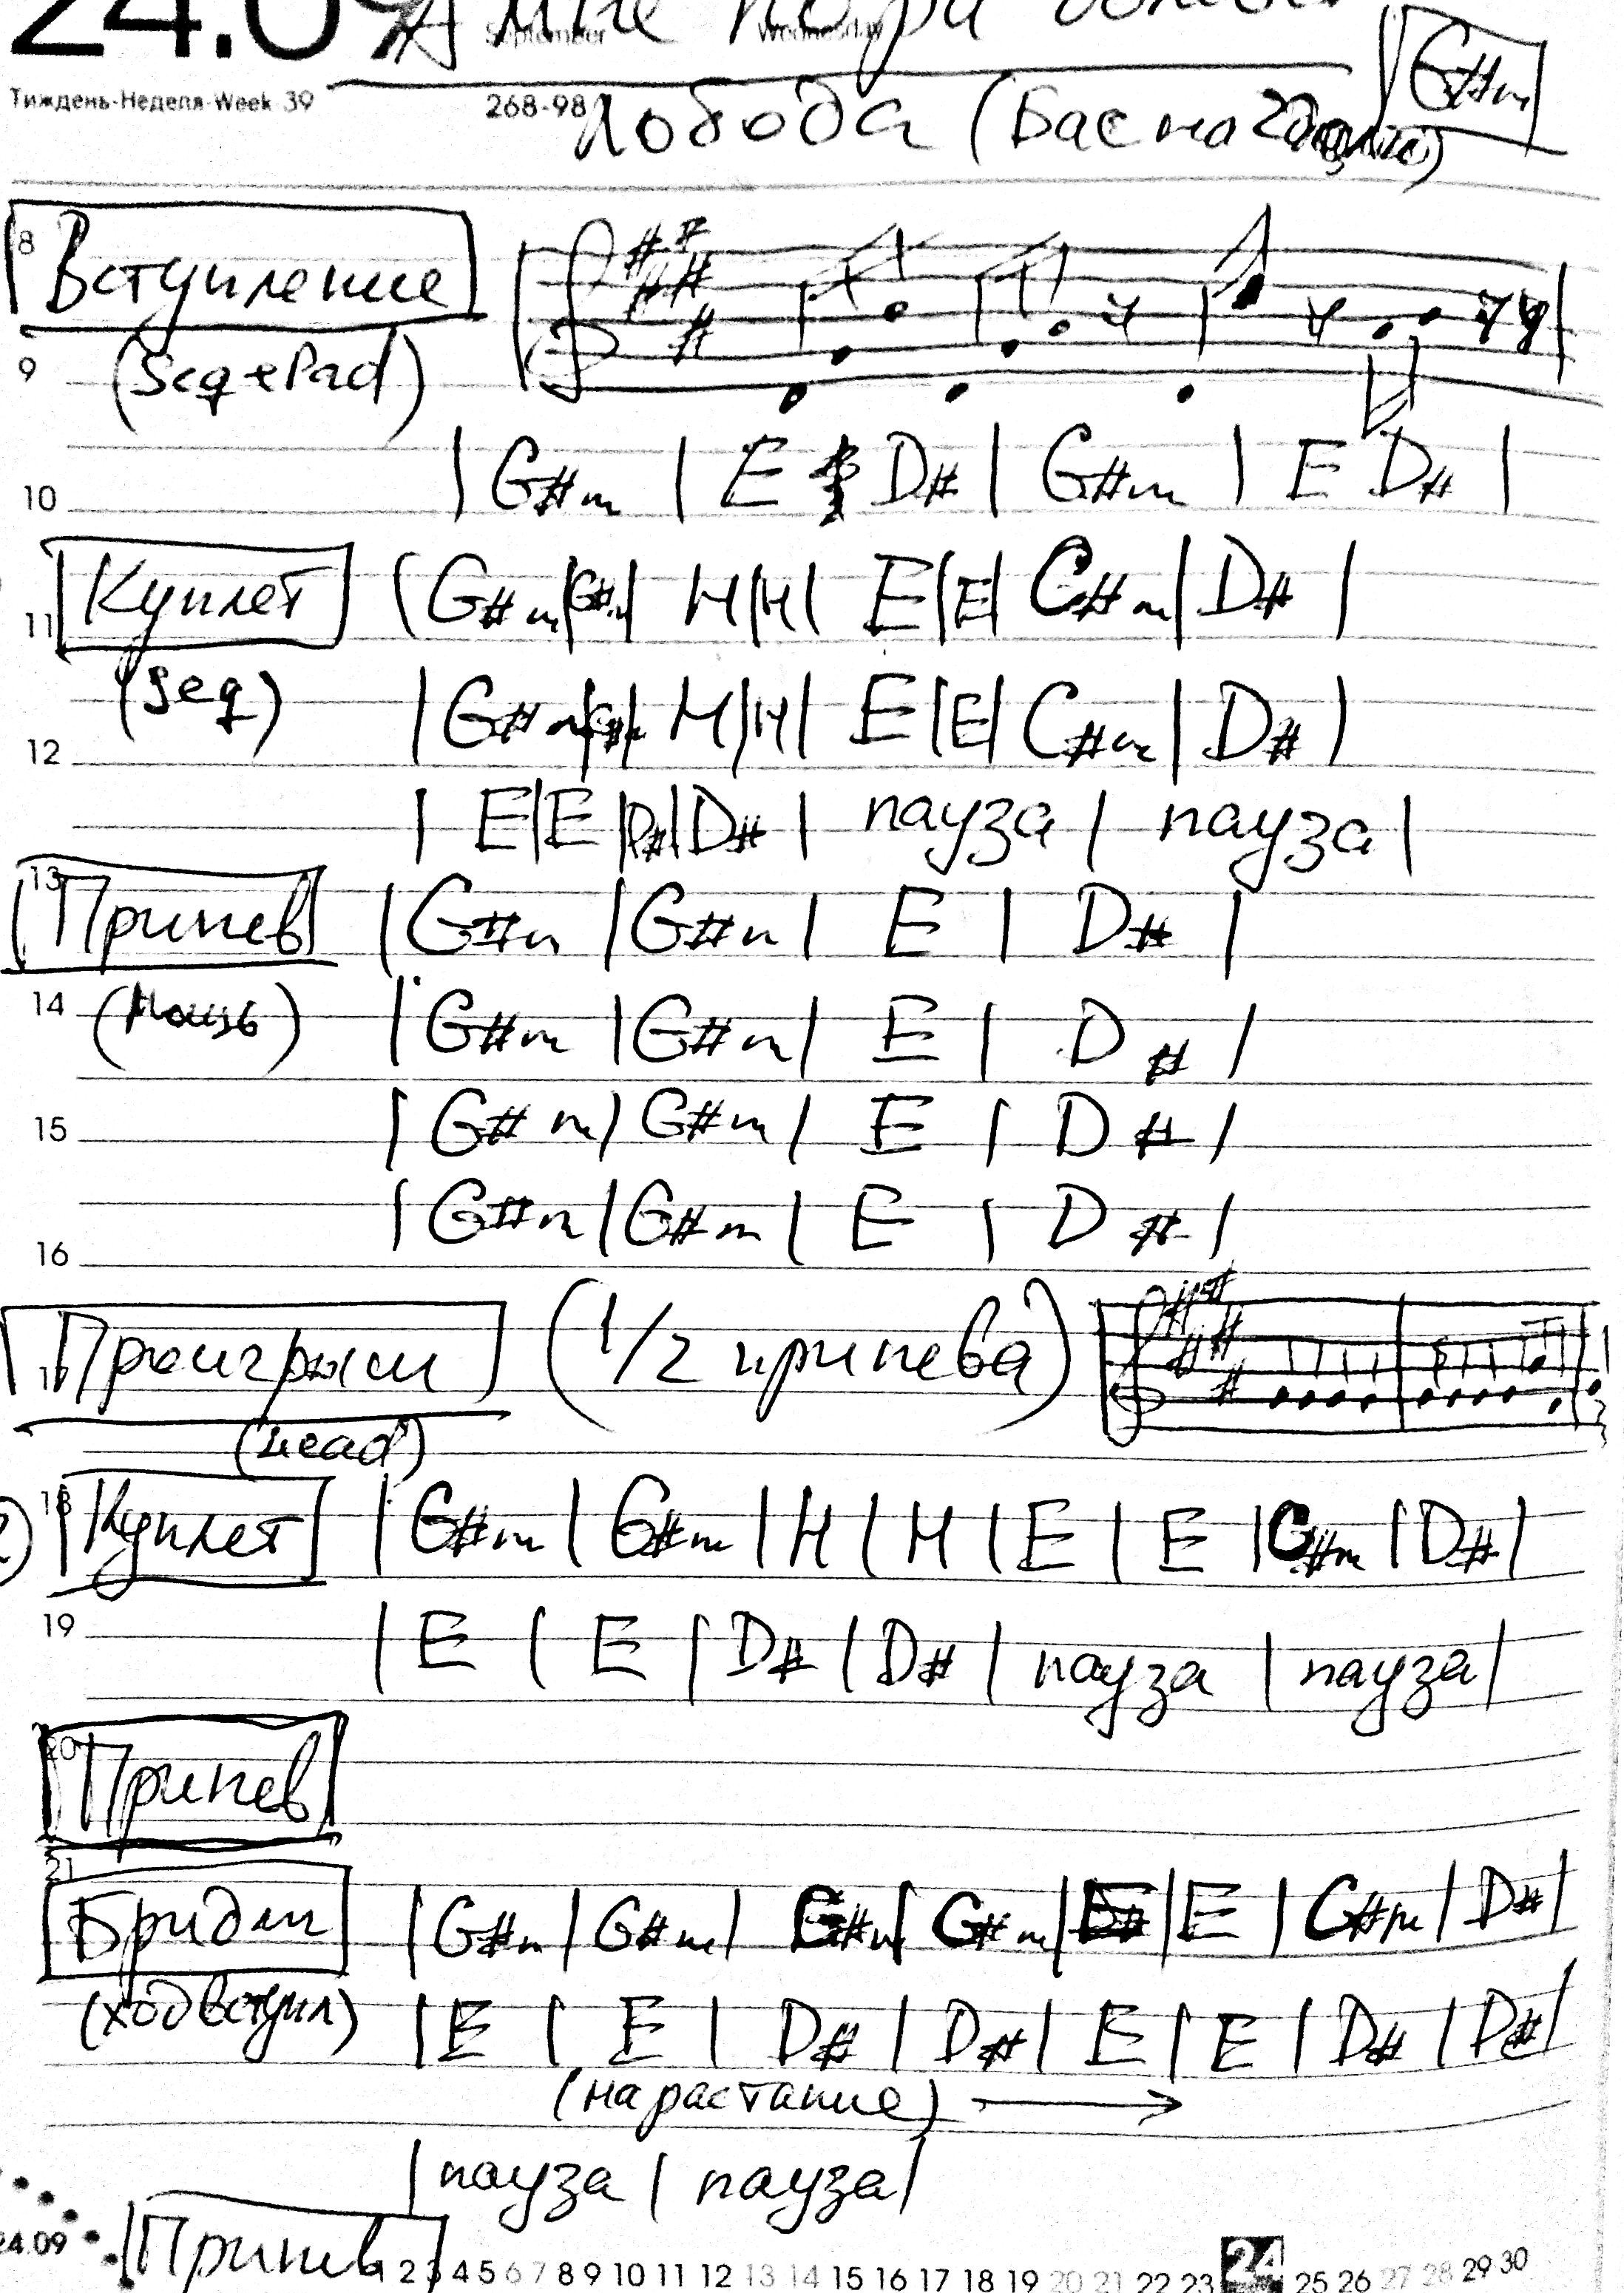 24.09 А мне пора
September Wednesday
G#m
Тиждень-Неделя-Week 39 268-98
Лобода (Бас на
8 Вступление
9 (Seq+Pad)
10 | G#m | E D# | G#m | E D# |
11 Куплет | G#m | G#m | H | H | E | E | C#m | D# |
(Seq)
12 | G#m | G#m | H | H | E | E | C#m | D# |
| E | E | D# | D# | пауза | пауза |
13 Припев | G#m | G#m | E | D# |
14 (Мощь) | G#m | G#m | E | D# |
15 | G#m | G#m | E | D# |
16 | G#m | G#m | E | D# |
17 Проигрыш (1/2 припева)
(Lead)
18 2) Куплет | G#m | G#m | H | H | E | E | C#m | D# |
19 | E | E | D# | D# | пауза | пауза |
20 Припев
21 Бридж | G#m | G#m | G#m | G#m | E | C#m | D# |
(ход вступл) | E | E | D# | D# | E | E | D# | D# |
(нарастание) →
| пауза | пауза |
24.09 Припев 2 3 4 5 6 7 8 9 10 11 12 13 14 15 16 17 18 19 20 21 22 23 24 25 26 27 28 29 30